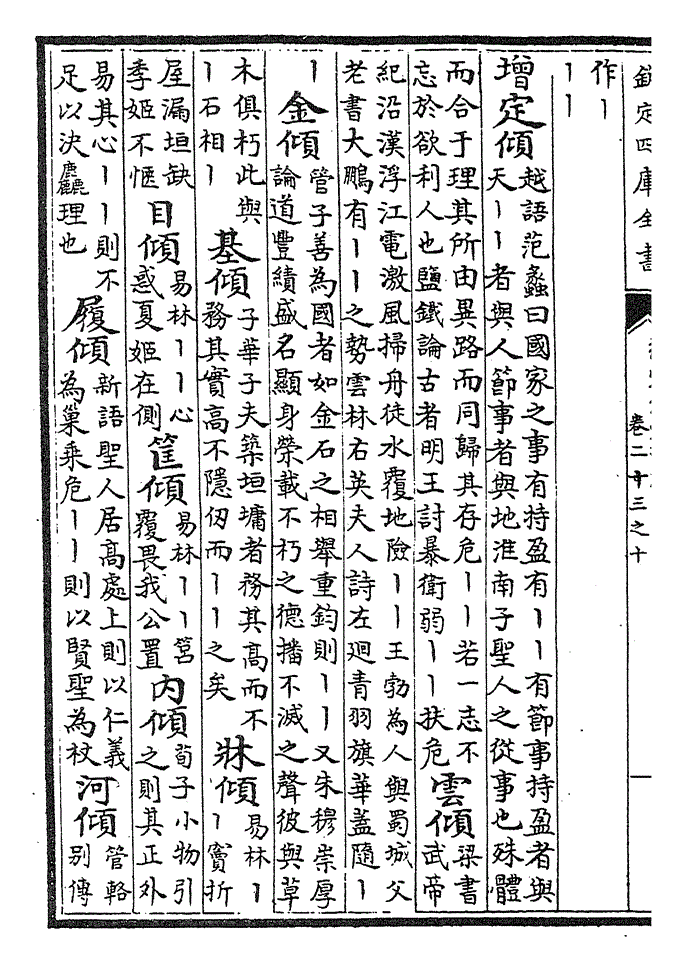 欽定四庫全書
卷二十三之十
作丨
丨丨
增定傾
越語范蠡曰國家之事有持盈有丨丨有節事持盈者與
天丨丨者與人節事者與地淮南子聖人之從事也殊體
而合于理其所由異路而同歸其存危丨丨若一志不
忘於欲利人也鹽鐵論古者明王討暴衛弱丨丨扶危
雲傾
梁書
武帝
紀沿漢浮江電激風掃舟徒水覆地險丨丨王勃為人與蜀城父
老書大鵬有丨丨之勢雲林右英夫人詩左廻青羽旗華蓋隨丨
丨
金傾
管子善為國者如金石之相舉重鈞則丨丨又朱穆崇厚
論道豐績盛名顯身榮載不朽之德播不滅之聲彼與草
木俱朽此與
丨石相丨
基傾
子華子夫築垣墉者務其高而不
務其實高不隱仞而丨丨之矣
牀傾
易林丨
丨竇折
屋漏垣缺
季姬不愜
目傾
易林丨丨心
惑夏姬在側
筐傾
易林丨丨筥
覆畏我公置
内傾
荀子小物引
之則其正外
易其心丨丨則不
足以決麤理也
履傾
新語聖人居高處上則以仁義
為巢乘危丨丨則以賢聖為杖
河傾
管輅
别傳